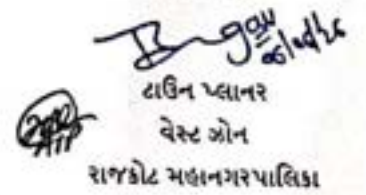 ટાઉન પ્લાનર
વેસ્ટ ઝોન
રાજકોટ મહાનગરપાલિકા